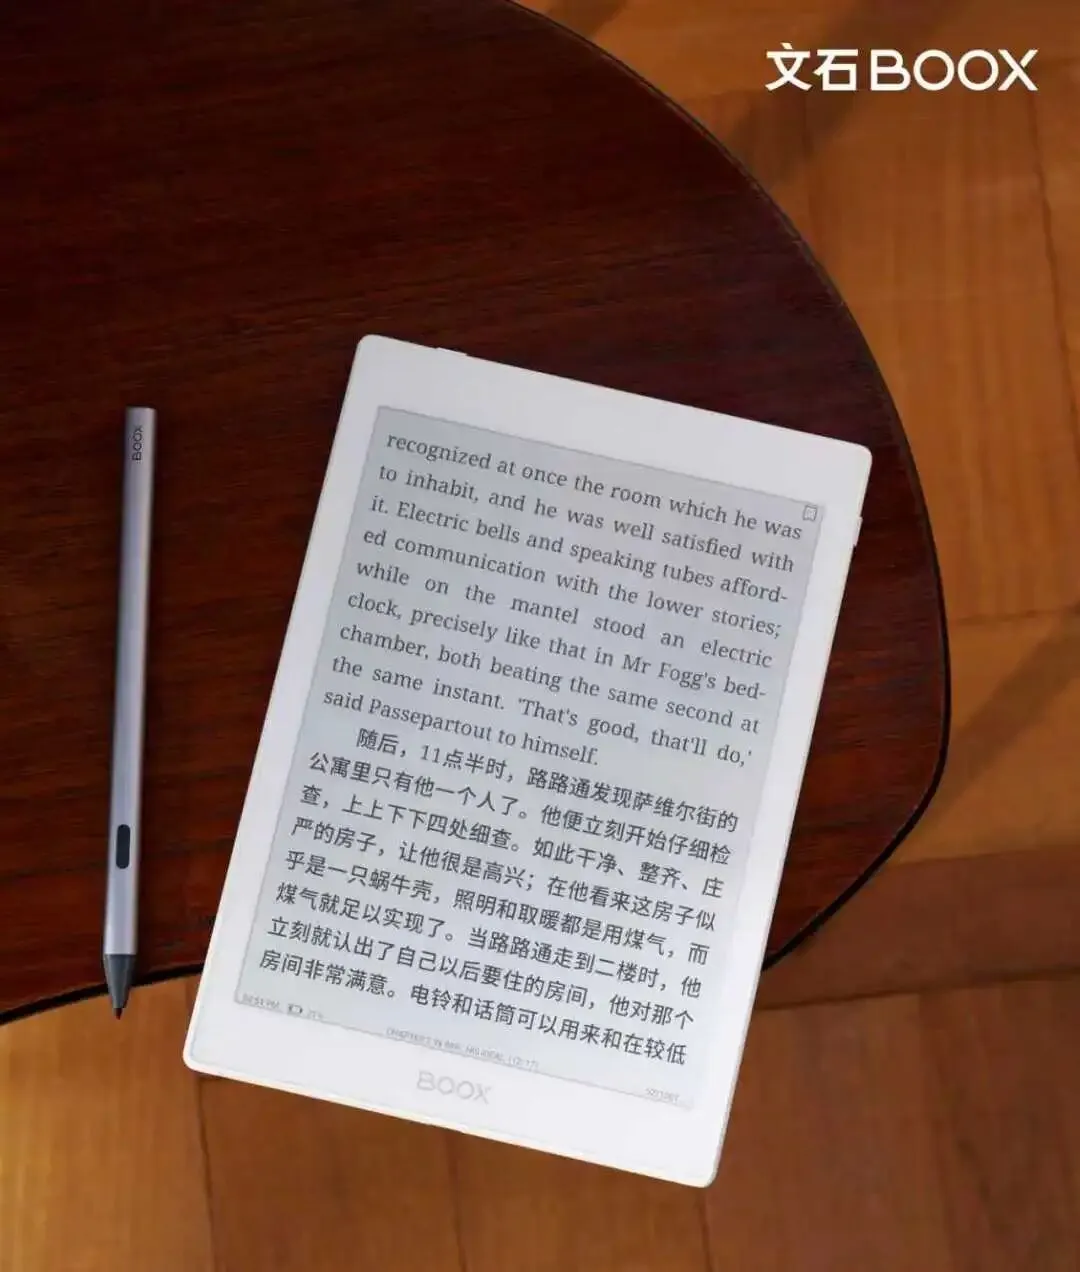 文石BOOX
BOOX
recognized at once the room which he was
to inhabit, and he was well satisfied with
it. Electric bells and speaking tubes afford-
ed communication with the lower stories;
while on the mantel stood an electric
clock, precisely like that in Mr Fogg's bed-
chamber, both beating the same second at
the same instant. 'That's good, that'll do,'
said Passepartout to himself.
随后，11点半时，路路通发现萨维尔街的
公寓里只有他一个人了。他便立刻开始仔细检
查，上上下下四处细查。如此干净、整齐、庄
严的房子，让他很是高兴；在他看来这房子似
乎是一只蜗牛壳，照明和取暖都是用煤气，而
煤气就足以实现了。当路路通走到二楼时，他
立刻就认出了自己以后要住的房间，他对那个
房间非常满意。电铃和话筒可以用来和在较低
BOOX